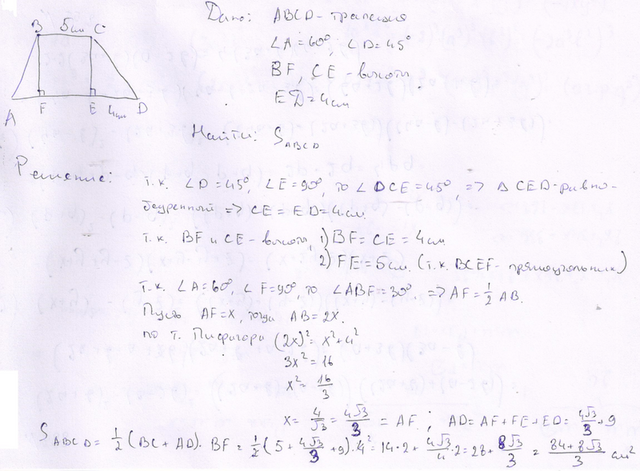 B 5см C
A F E 4см D
Дано: ABCD - трапеция
∠A=60°, ∠D=45°
BF, CE - высоты
ED=4см
Найти: S_ABCD
Решение:
т.к. ∠D=45°, ∠E=90°, то ∠DCE=45° => △ CED-равно-
бедренный => CE=ED=4см
т.к. BF и CE - высоты, 1) BF=CE=4см
2) FE=5см. (т.к. BCEF - прямоугольник)
т.к. ∠A=60°, ∠F=90°, то ∠ABF=30°. => AF=1/2 AB.
Пусть AF=x, тогда AB=2x.
по т. Пифагора (2x)²=x²+4²
3x²=16
x²=16/3
x=4/√3=4√3/3=AF; AD=AF+FE+ED=4√3/3+9
S_ABCD=1/2(BC+AD)·BF=1/2(5+4√3/3+9)·4²=14·2+4√3/4·2=28+8√3/3=(84+8√3)/3 см²